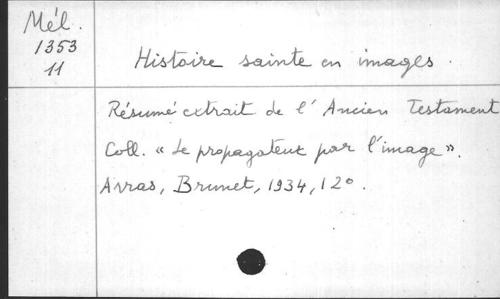 Mél.
1353
11
Histoire sainte en images.
Résumé extrait de l'Ancien Testament
Coll. « Le propagateur par l'image ».
Arras, Brunet, 1934, 12°.